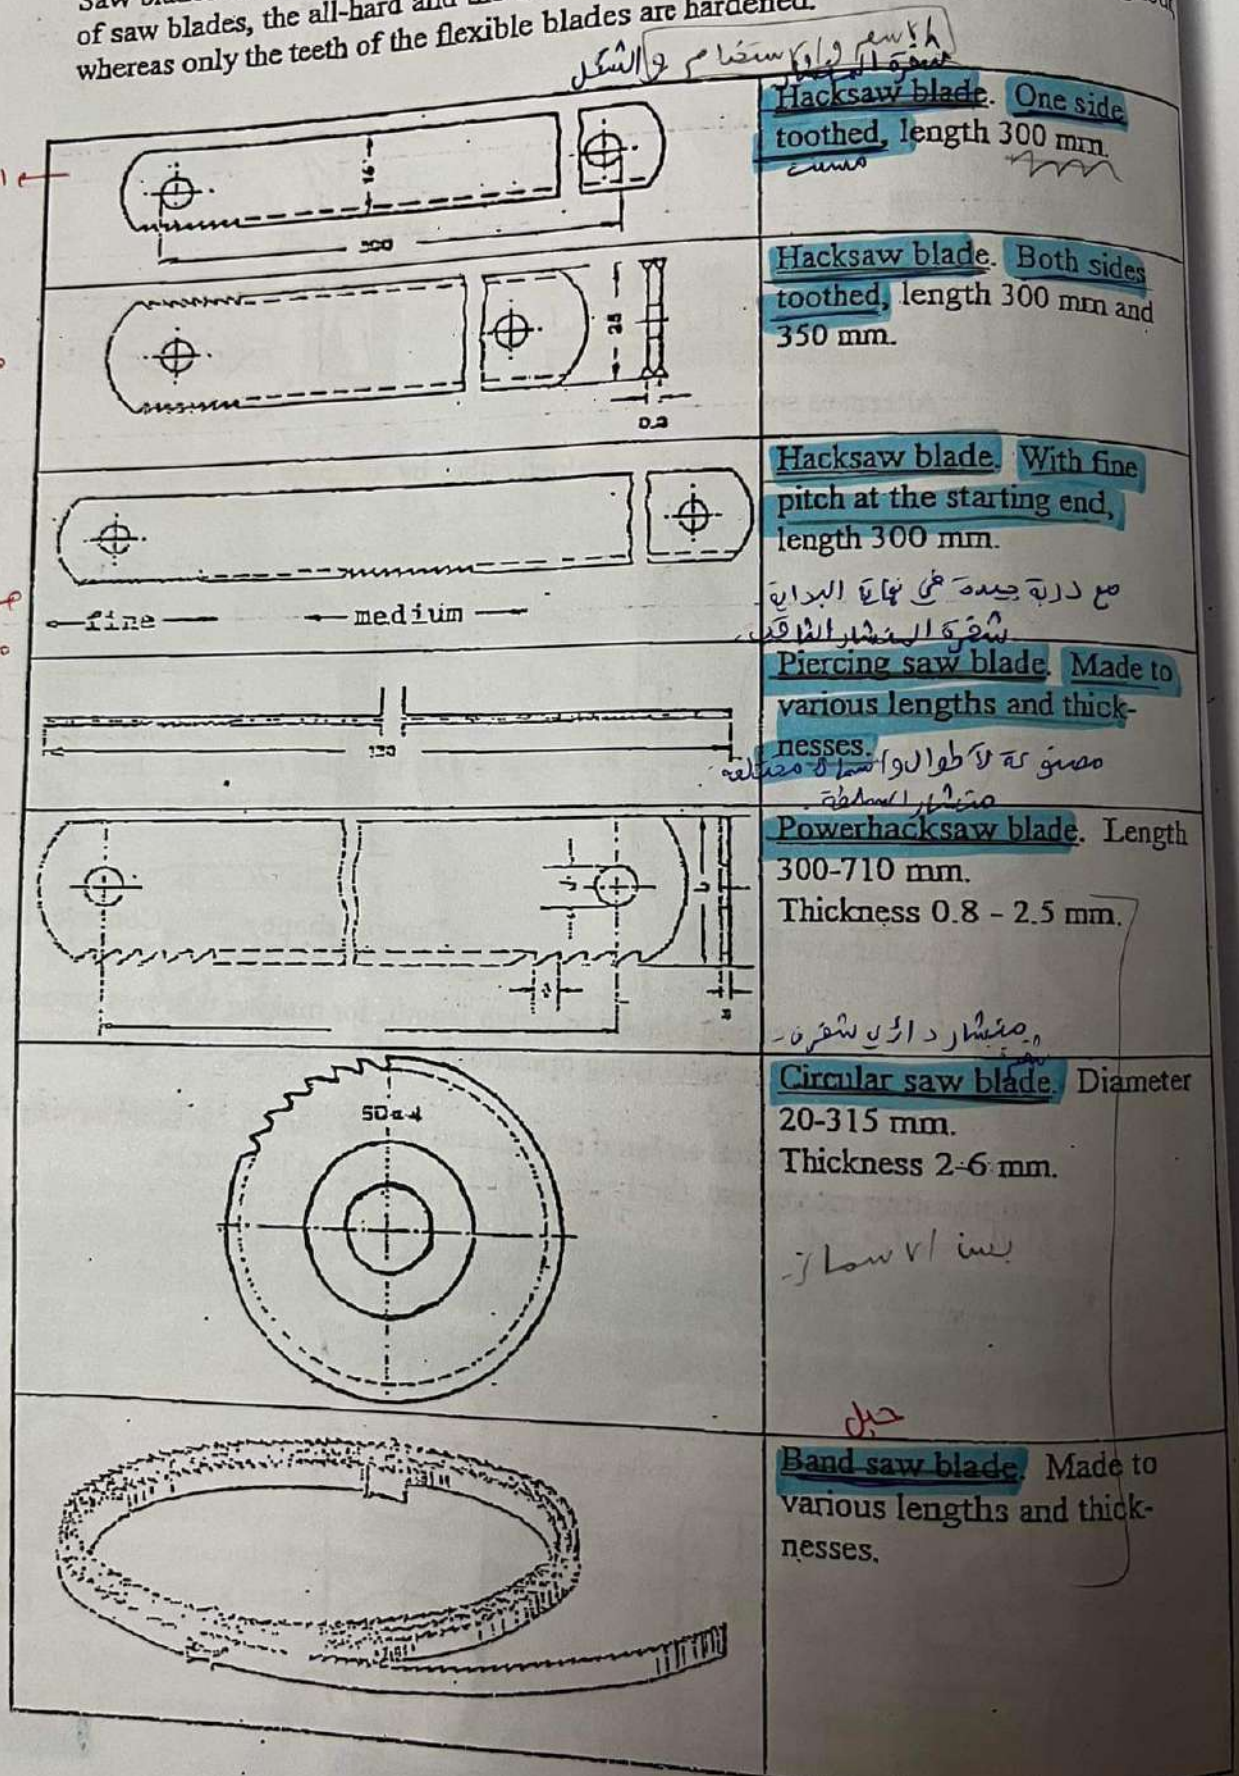 of saw blades, the all-hard and
whereas only the teeth of the flexible blades are hardened.
الاسم والاستخدام والشكل
Hacksaw blade. One side
toothed, length 300 mm.
16
300
Hacksaw blade. Both sides
toothed, length 300 mm and
350 mm.
25
Hacksaw blade. With fine
pitch at the starting end,
length 300 mm.
مع دربة جيدة في نهاية البداية
fine
medium
شفرة المنشار الثاقب
Piercing saw blade. Made to
various lengths and thick-
nesses.
130
مصنوعة لأطوال وأسماك مختلفة
Powerhacksaw blade. Length
300-710 mm.
Thickness 0.8 - 2.5 mm.
منشار دائري شفرة
Circular saw blade. Diameter
20-315 mm.
Thickness 2-6 mm.
Band saw blade. Made to
various lengths and thick-
nesses.